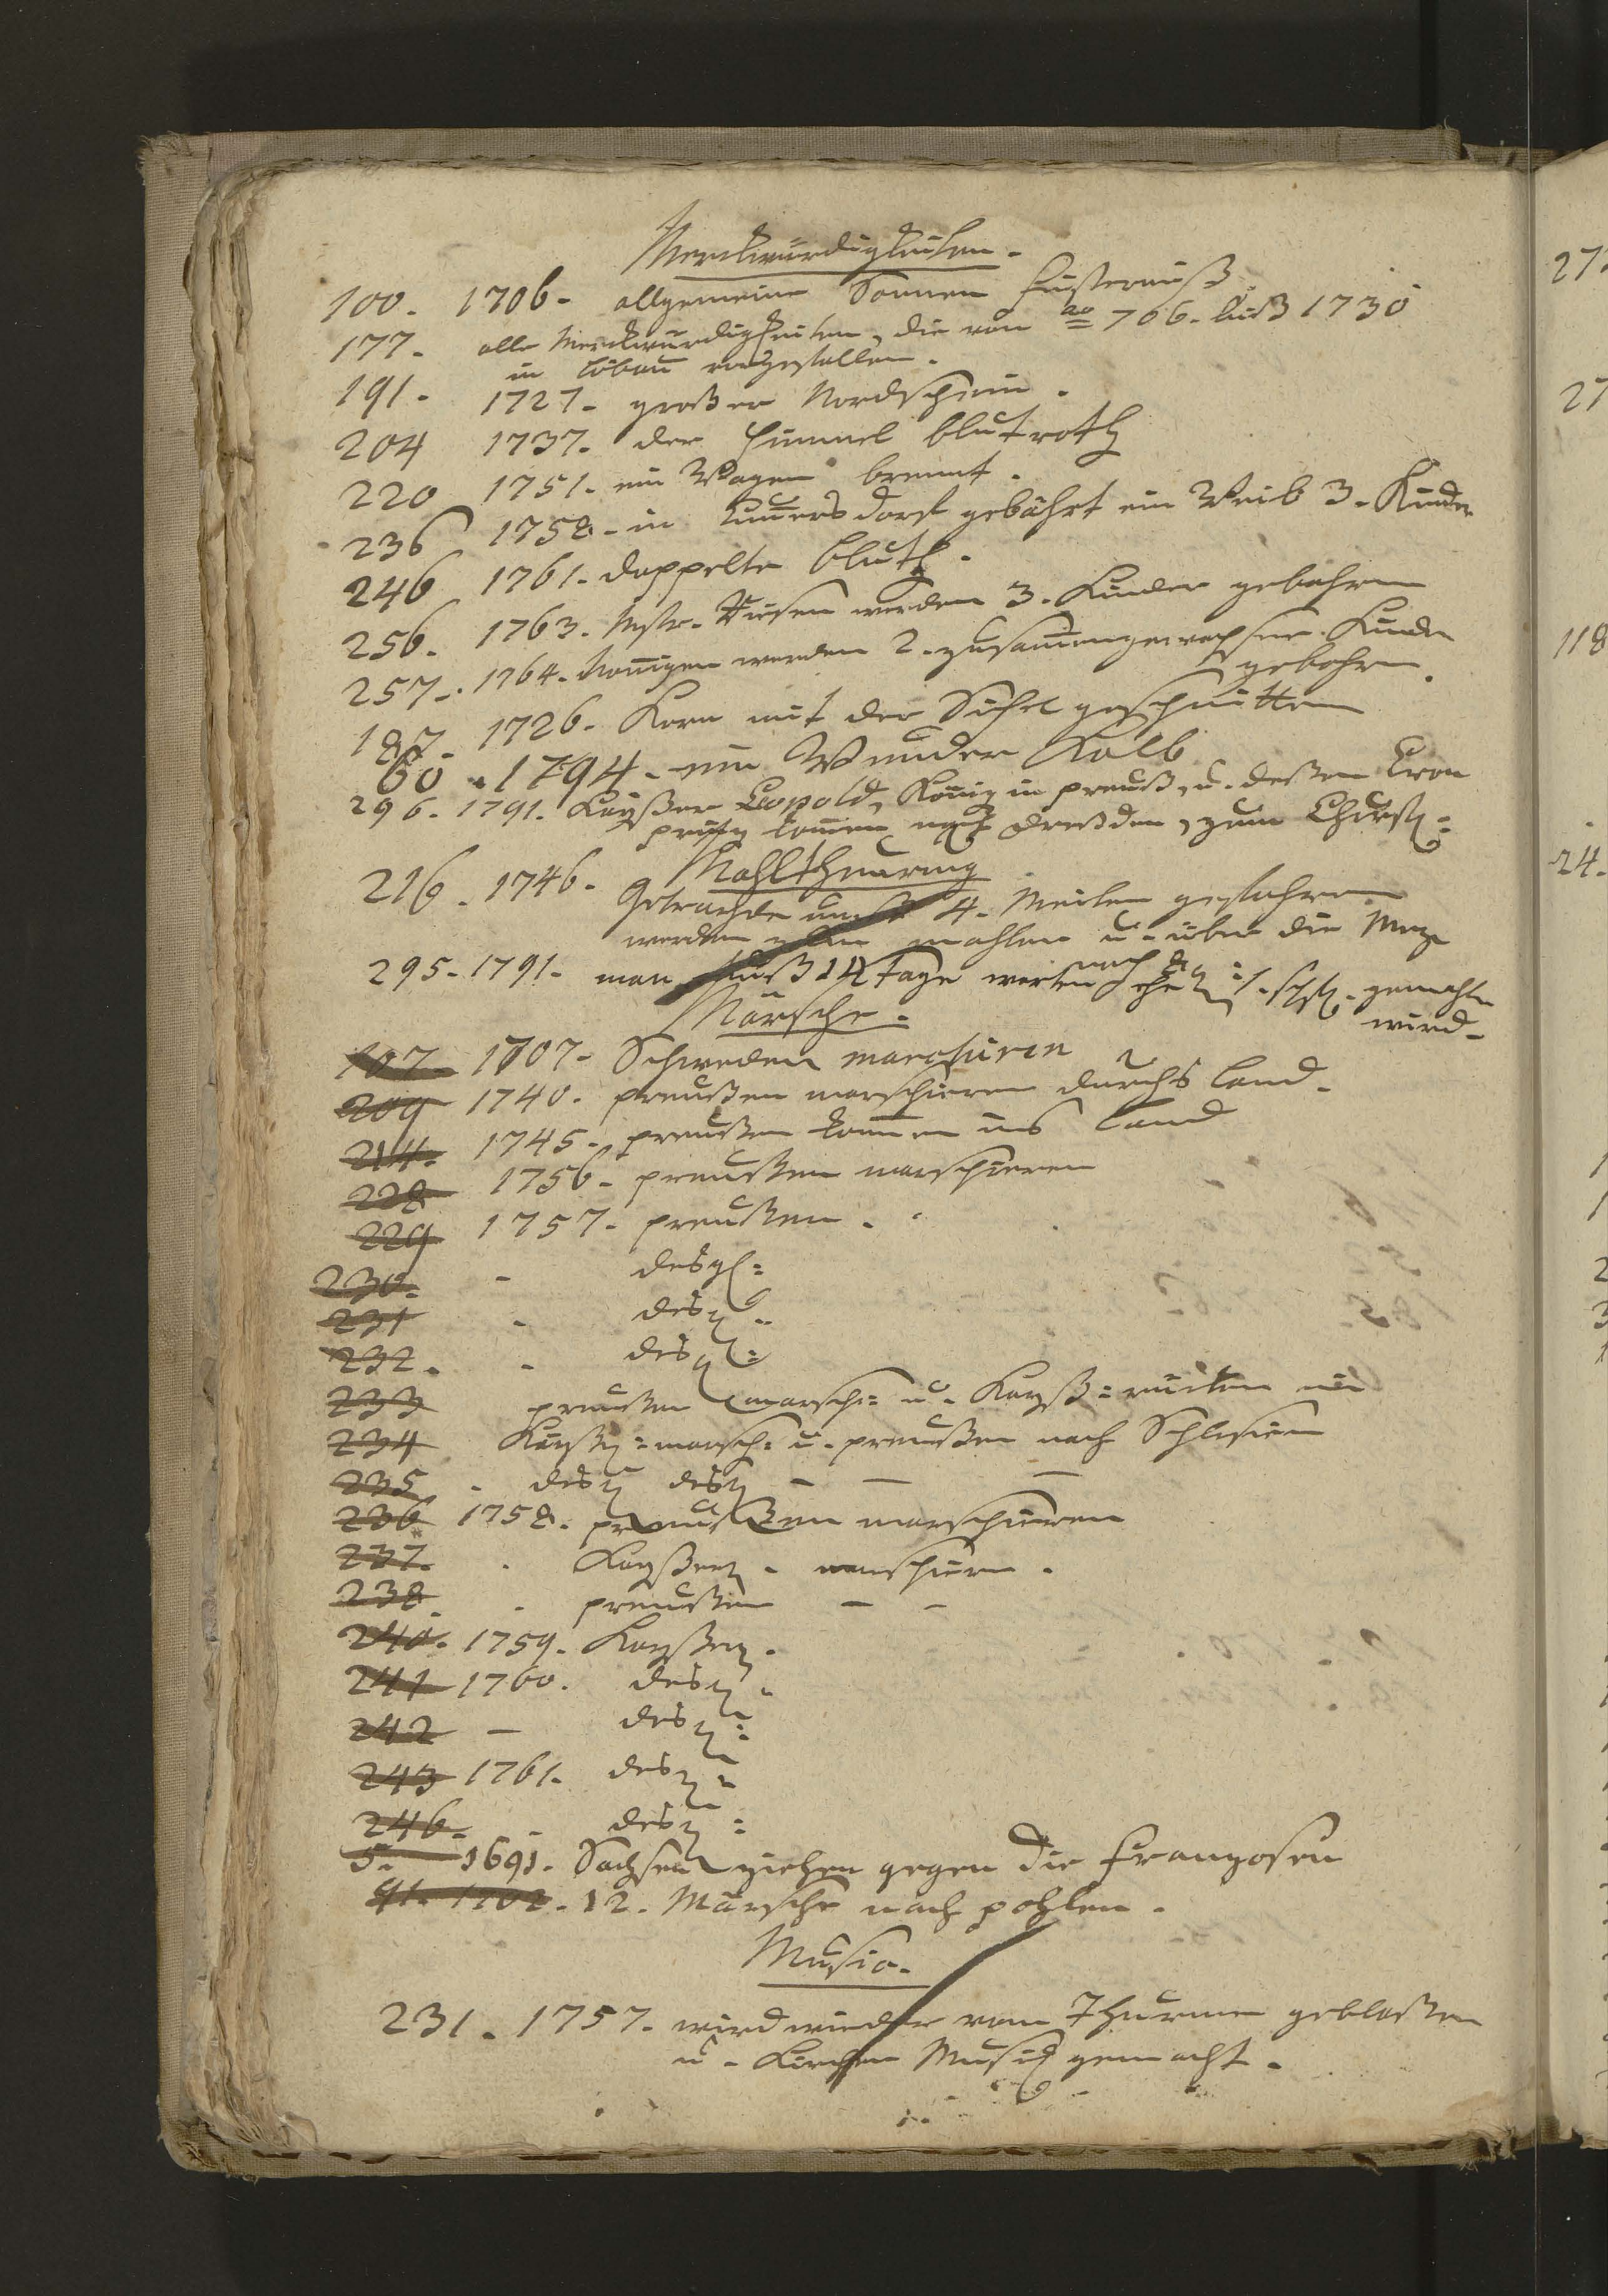 Merckwürdigkeiten.
100. 1706. allgemeine Sonnen finsternuß.
177. alle Merckwürdigkeiten, die von ao 706. biß 1730
in Löbau vorgefallen.
191. 1727. großer Nordschein.
204 1737. der Himmel blutroth
220 1751. ein Wagen brennt.
236 1758. in dorf gebährt ein Weib 3. Kinder
246 1761. doppelte bluth.
256. 1763. werden 3. Kinder gebohren
257. 1764. werden 2. zusammengewachsene Kinder
gebohren.
187. 1726. Korn mit der Sichel geschnitten
60. 1794. ein Wunder Kalb
296. 1791. Kayßer Leopold, König in preuß, u. deßen Cron
printz komen nach Dreßden, zum Churf:
Mahltheurung
216. 1746. Getrayde muß 4. Meilen gefahren
werden zum mahlen u. über die Metze
295. 1791. man muß 14 Tage warten ehe 1. schfl. gemahlen
wird.
Märsche.
107. 1707. Schweden marchiren
209 1740. preußen marschieren durchs Land.
214. 1745. preußen kommen ins Land
228 1756. preußen marschieren
229 1757. preußen.
230. - desgl:
231 - desgl:
232. - desgl:
233 preußen marsch: u. Kayß: rücken ein
234 Kayßl: marsch: u. preußen nach Schlesien
235. - desgl desgl - - -
236 1758. preußen marschieren
237. - Kayßerl. marschiren.
238. - preußen - -
240. 1759. Kayßerl.
241 1760. desgl.
242 - desgl:
243 1761. desgl:
246. - desgl:
5. 1691. Sachsen ziehen gegen die Franzosen
41. 1702. 12. Märsche nach pohlen.
Music.
231. 1757. wird wieder vom Thurme geblaßen
u. Kirchen Musick gemacht.
27
27
118
24.